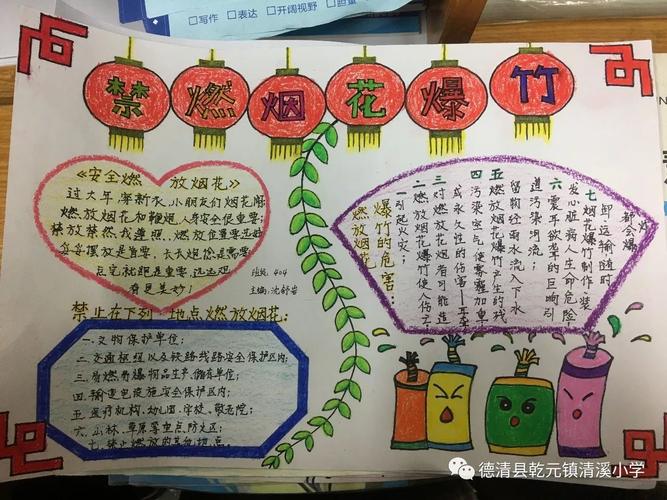 □写作 □表达 □开阔视野 □胆量
禁燃烟花爆竹
《安全燃放烟花》
过大年,穿新衣,小朋友们烟花闹
燃放烟花和鞭炮,人身安全很重要;
禁放禁燃我遵照,燃放位置要选好
妥妥摆放是首要,长长烟捻是需要
点完就跑是重要,远远观
看更美妙!
班级404
主编:沈舒岩
禁止在下列地点燃放烟花:
一.文物保护单位;
二.交通枢纽以及铁路线路安全保护区内;
三.易燃易爆物品生产、储存单位;
四.输变电设施安全保护区内;
五.医疗机构,幼儿园,学校,敬老院;
六.山林、草原等重点防火区;
七.禁止燃放的其他地点。
燃放烟花
爆竹的危害:
一引起火灾;
二燃放烟花爆竹使人伤亡
三对燃放烟花者可能造
成永久性的伤害
四污染空气使雾霾加重
五燃放烟花爆竹产生的残
留物经雨水流入下水
道污染河流;
六震耳欲聋的巨响引
发心脏病人生命危险
七烟花爆竹制作、装
卸运输随时
都会爆炸
德清县乾元镇清溪小学